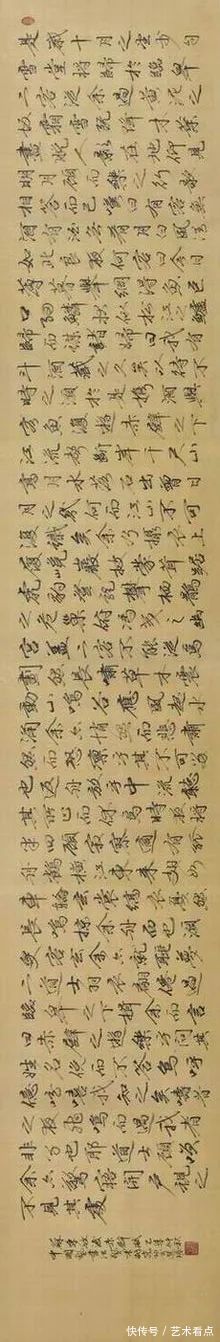 是歲十月之望步自
雪堂將歸於臨皋
二客從余過黃泥之
坂霜露既降木葉
盡脫人影在地仰見
明月顧而樂之行歌
相答而已嘆曰有客無
酒有酒無肴月白風清
如此良夜何客曰今日
薄暮舉網得魚巨
口細鱗狀似松江之鱸
歸而謀諸婦婦曰我有
斗酒藏之久矣以待不
時之須於是攜酒與
魚復遊赤壁之下
江流有聲斷岸千尺山
高月小水落石出曾日
月之幾何而江山不可
復識矣余乃攝衣上
履巉巖披蒙茸踞
虎豹登虬龍攀棲鶻
之危巢俯馮夷之幽
宮蓋二客不能從焉
劃然長嘯草木震
動山鳴谷應風起水
涌余亦悄然而悲肅
然而恐凜乎其不可留
也返而登舟放乎中流聽
其所止而休焉時夜將
半四顧寂寥適有孤
鶴橫江東來翅如
車輪玄裳縞衣戛然
長鳴掠余舟而西也須
臾客去余亦就睡夢
二道士羽衣翩躚過
臨皋之下揖余而言
曰赤壁之遊樂乎問其
姓名俛而不答嗚呼
噫嘻我知之矣疇昔
之夜飛鳴而過我者
非子也耶道士顧笑
余亦驚寤開戶視之
不見其處
快传号/艺术看点